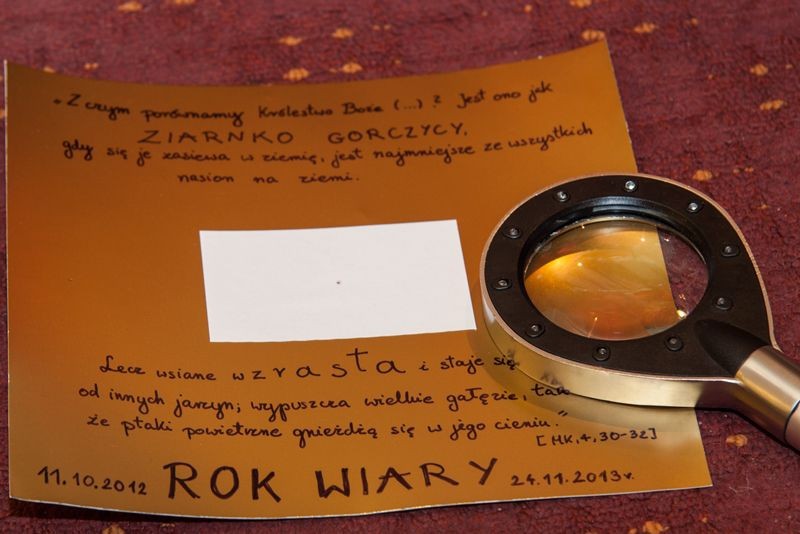 „Z czym porównamy Królestwo Boże (...) ? Jest ono jak
ZIARNKO GORCZYCY,
gdy się je zasiewa w ziemię, jest najmniejsze ze wszystkich
nasion na ziemi.
Lecz wsiane wzrasta i staje się
od innych jarzyn; wypuszcza wielkie gałęzie, tak
że ptaki powietrzne gnieżdżą się w jego cieniu."
[MK, 4, 30-32]
11.10.2012 ROK WIARY 24.11.2013r.